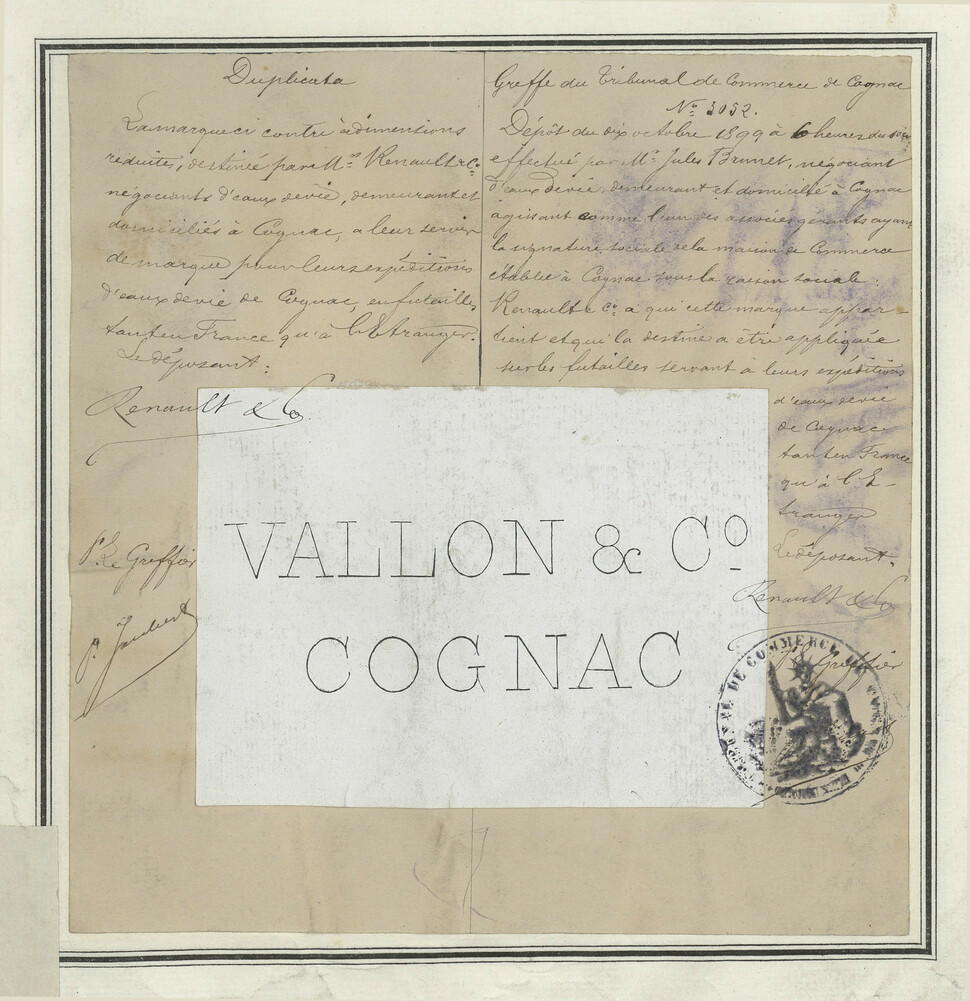 Duplicata
La marque ci contre à dimensions
réduites, destinée par M.rs Renault & Co
négociants d'eaux de vie, demeurant et
domiciliés à Cognac, a leur servir
de marque pour leurs expéditions
d'eaux de vie de Cognac, en futailles,
tant en France qu'à l'Etranger.
Le déposant:
Renault & Co
P. Le Greffier
P. Jaubert
Greffe du Tribunal de Commerce de Cognac
No 3052.
Dépôt du dix octobre 1899 à 6 heures du soir
effectué par Mr Jules Brunet, négociant
d'eaux de vie, demeurant et domicilié à Cognac
agissant comme l'un des associés gérants ayant
la signature sociale de la maison de Commerce
établie à Cognac sous la raison sociale:
Renault & Co à qui cette marque appar
tient et qui la destine a être appliquée
sur les futailles servant à leurs expéditions
d'eaux de vie
de Cognac
tant en France
qu'à l'E-
tranger
Le déposant.
Renault & Co
P. Le Greffier
VALLON & Co
COGNAC
TRIBUNAL DE COMMERCE